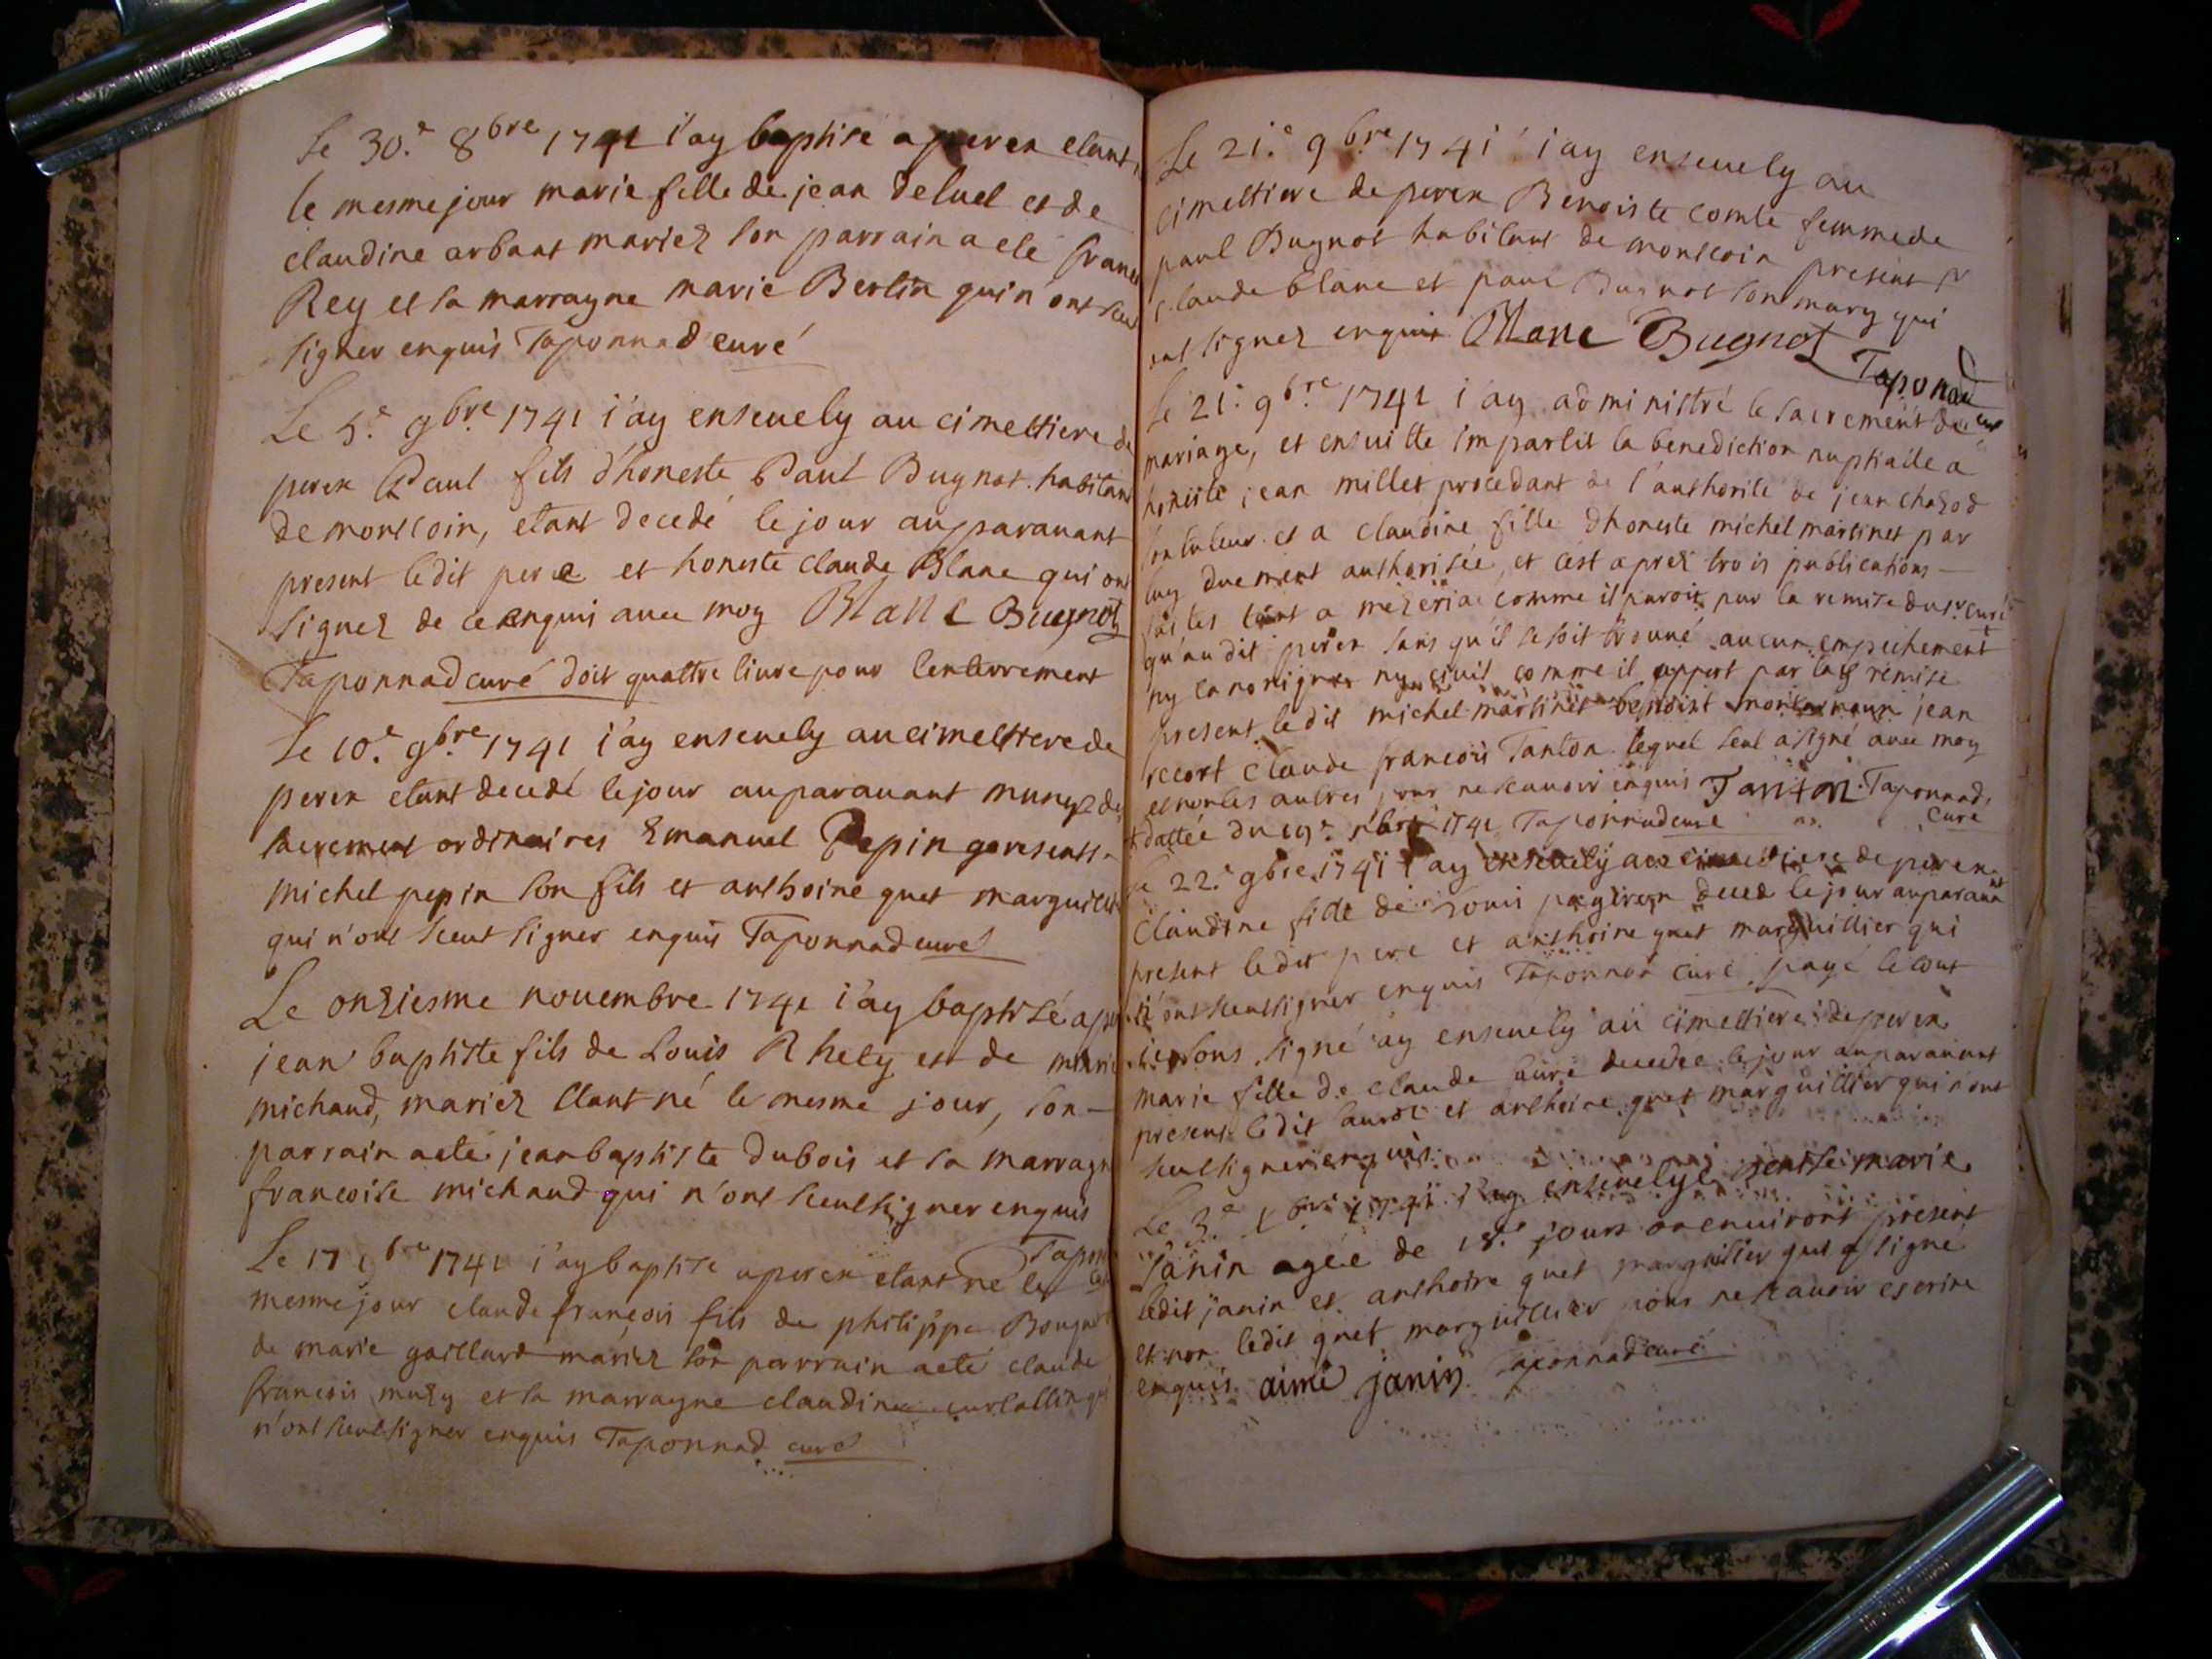 Le 30.e 8bre 1741 i'ay baptisé a peren etant
le mesme jour marie fille de jean deluel et de
claudine arbant mariez son parrain a eté franc
Rey et la marrayne marie Bertin qui n'ont sceu
signer enquis Taponnad curé
Le 5.e 9bre 1741 i'ay enseuely au cimettiere de
peren Paul fils d'honeste Paul Bugnot habitant
de montcoin, etant decedé le jour auparauant
present ledit pere et honeste claude Blanc qui ont
signez de ce enquis auec moy Blanc Bugnot
Taponnad curé doit quattre liure pour lenterrement
Le 10.e 9bre 1741 i'ay enseuely au cimettiere de
peren etant decedé le jour auparauant munyz des
sacrement ordinaires Emanuel Pepin presents
michel pepin son fils et anthoine guet marguill
qui n'ont sceut signer enquis Taponnad curé
Le onziesme nouembre 1741 i'ay baptisé a per
jean baptiste fils de Louis Rhety et de marie
michaud, mariez etant né le mesme jour, son
parrain a eté jean baptiste dubois et la marrayn
francoise michaud qui n'ont sceut signer enquis
Tapon
Le 17 9bre 1741 i'ay baptisé a peren etant né le
mesme jour claude françois fils de philippe Bougnot
de marie gaillard mariez son parrain a eté claude
francois muzy et la marrayne claudine qui
n'ont sceut signer enquis Taponnad curé
Le 21.e 9bre 1741 i'ay enseuely au
cimettiere de peren Benoiste comte femme de
paul Bugnot habitant de montcoin present sr
claude blanc et paul Bugnot son mary qui
ont signez enquis Blanc Bugnot
Taponad
curé
Le 21.e 9bre 1741 i'ay administré le sacrement de
mariage, et ensuitte impartit la benediction nuptialle a
honeste jean millet procedant de l'authorité de jean chazod
son tuteur et a claudine fille d'honeste michel martinet par
luy duement authorisée, et c'est aprez trois publications
faites tant a mezeria comme il paroit par la remise du sr. curé
qu'audit peren sans qu'il se soit trouué aucun empechement
ny canonique ny ciuil comme il appert par la remise
present ledit michel martinet benoist jean
claude francois Tanton lequel seul a signé auec moy
et non les autres pour ne scauoir enquis Tanton Taponnad
curé
dattée du 19e 9bre 1741 Taponnad curé
Le 22.e 9bre 1741 i'ay enseuely au cimettiere de peren
claudine fille de Louis decedé le jour auparauant
present ledit pere et anthoine guet marguillier qui
n'ont sceut signer enquis Taponnad curé payé le tout
ie sous signé ay enseuely au cimettiere de peren
marie fille de claude decedee le jour auparauant
present ledit et anthoine guet marguillier qui n'ont
sceut signer enquis
Le 3.e 1741 i'ay enseuely marie
Janin agée de 18. jours ou enuiront present
ledit janin et anthoine guet marguillier qui a signé
et non ledit guet marguillier pour ne scauoir escrire
enquis aimé janin Taponnad curé